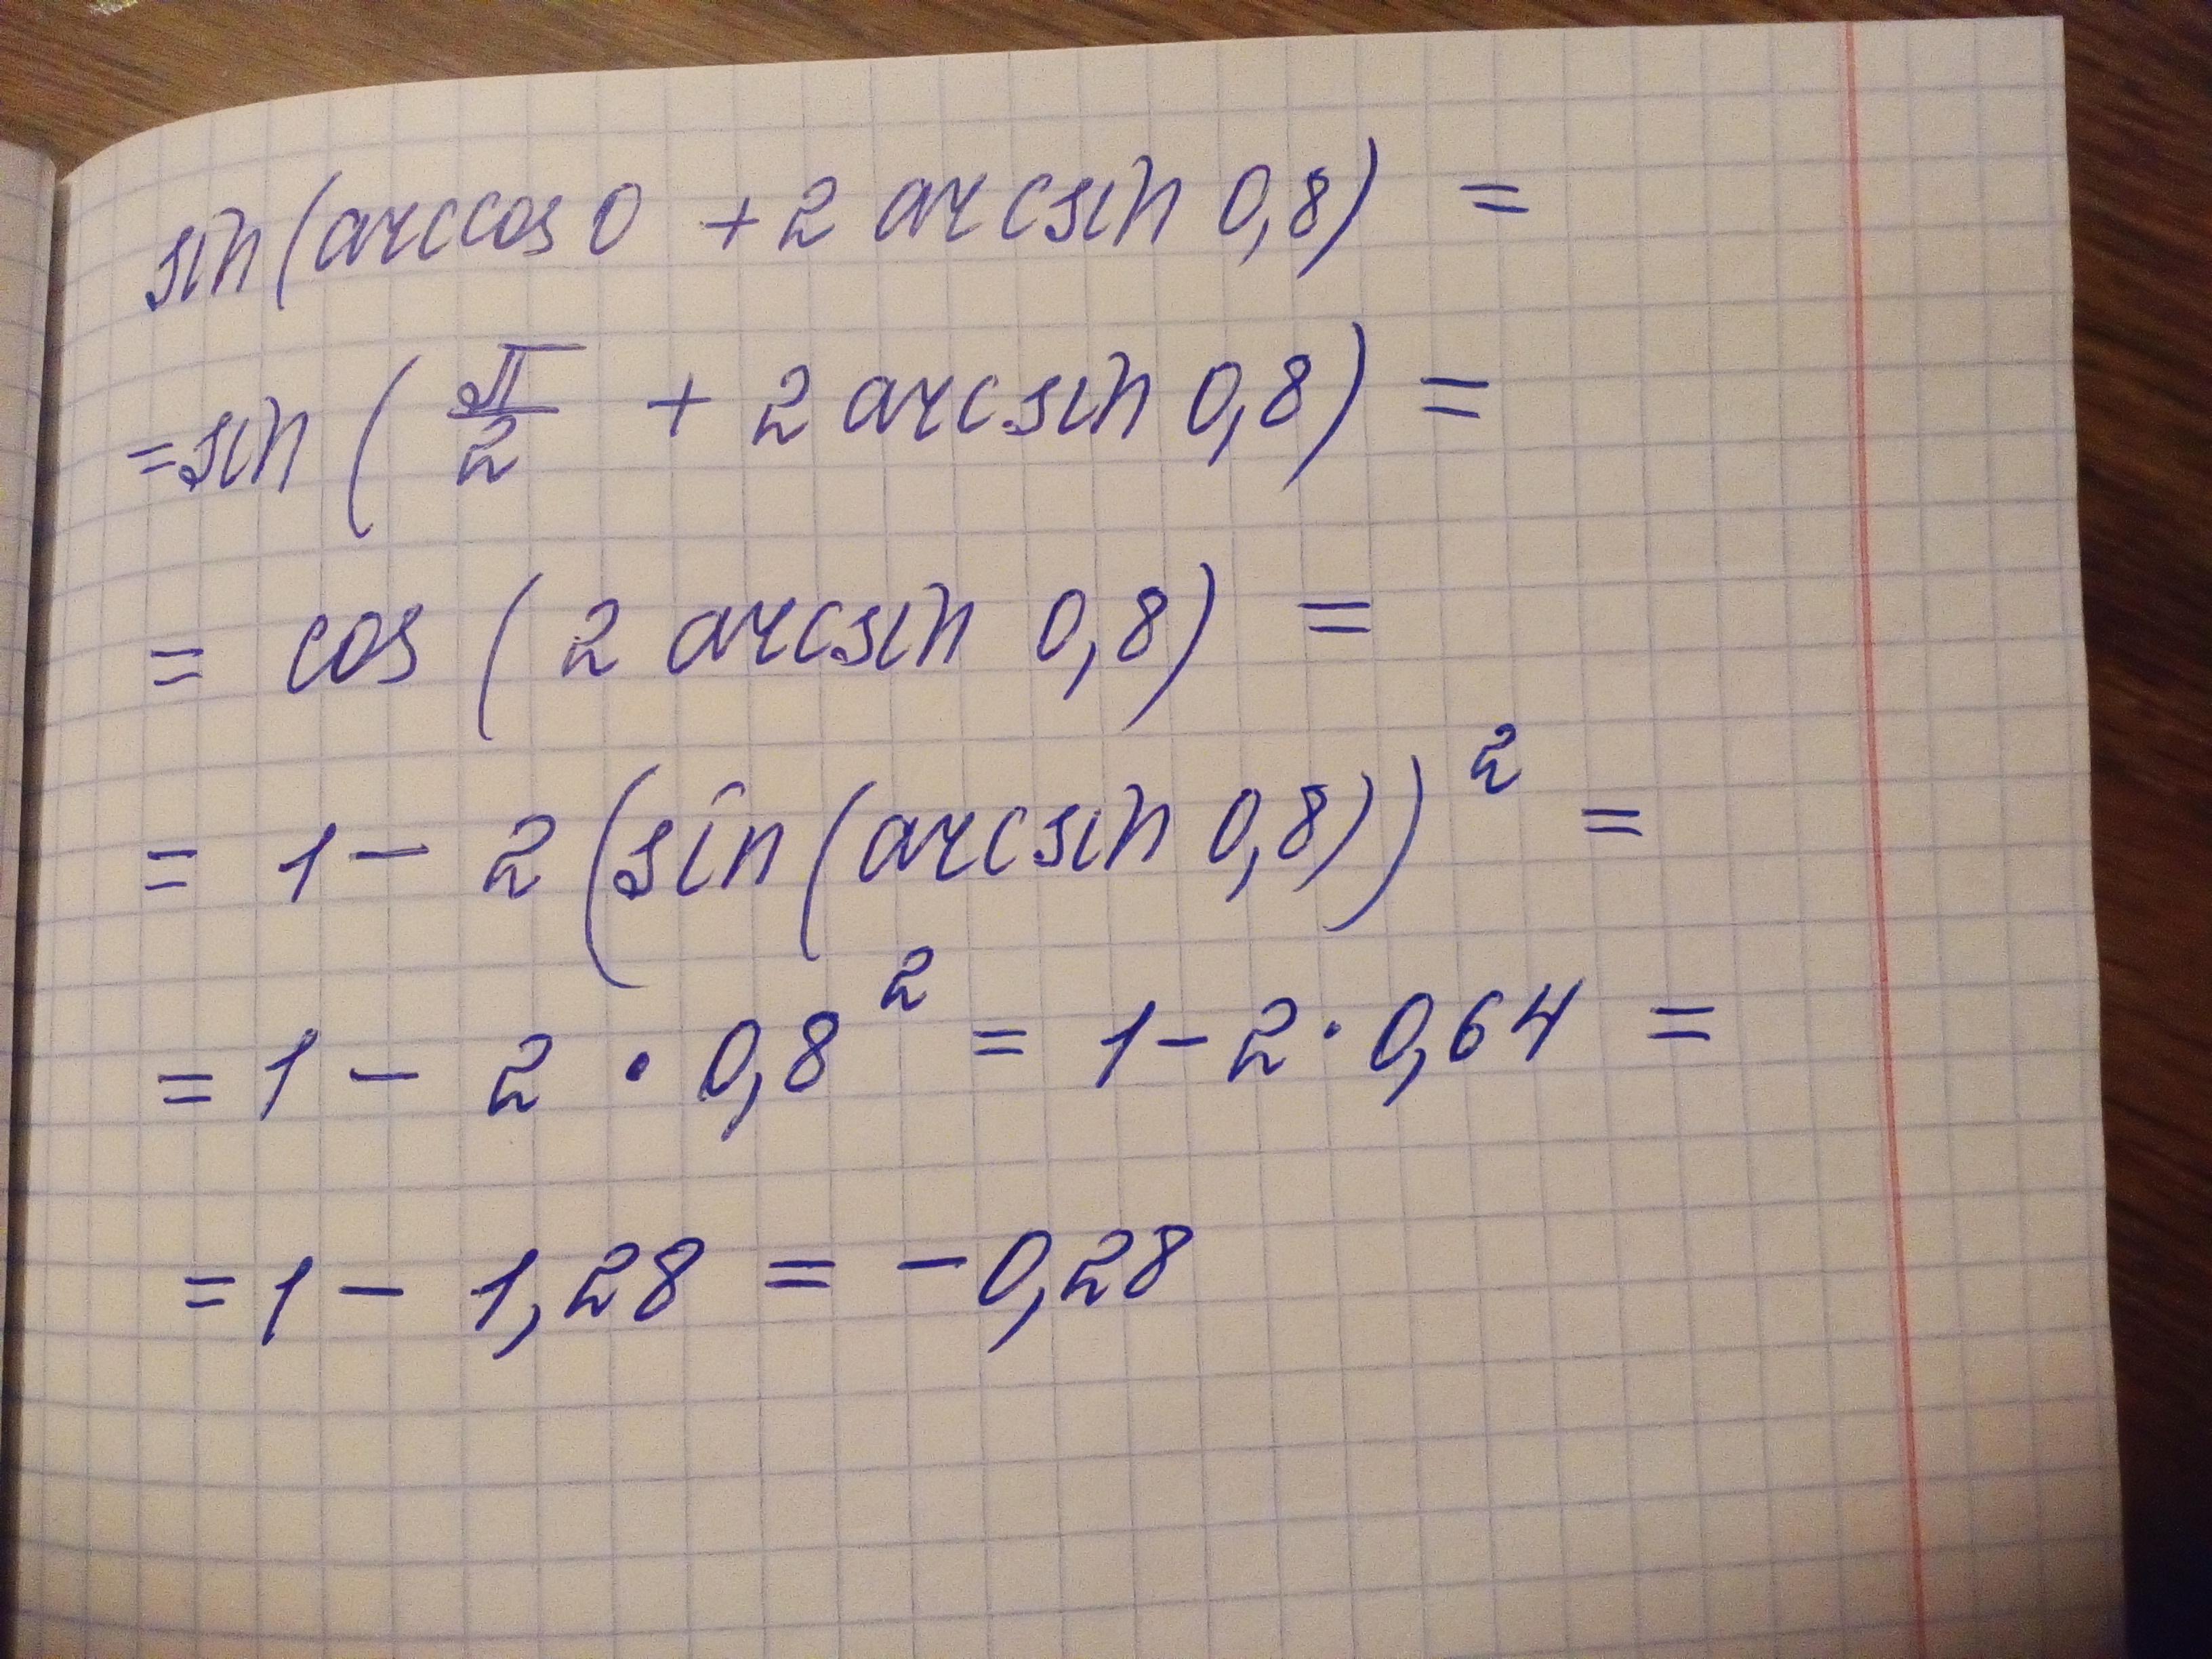 sin(arccos 0 + 2 arcsin 0,8) =
= sin(π/2 + 2 arcsin 0,8) =
= cos(2 arcsin 0,8) =
= 1 - 2(sin(arcsin 0,8))² =
= 1 - 2 · 0,8² = 1 - 2 · 0,64 =
= 1 - 1,28 = -0,28